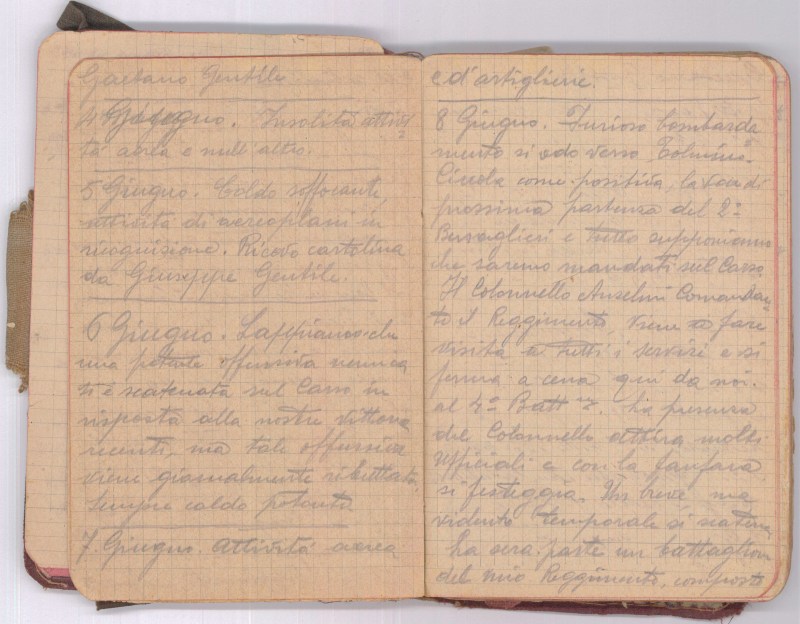 Gaetano Gentile
4 Giugno. Insolita attivi
tà aerea e null'altro.
5 Giugno. Caldo soffocante,
attività di aereoplani in
ricognisione. Ricevo cartolina
da Giuseppe Gentile.
6 Giugno. Sappiamo che
una potente offensiva nemica
si è scatenata sul Carso in
risposta alla nostre vittorie
recenti, ma tale offensiva
viene giornalmente ributtata.
Sempre caldo potente
7. Giugno. Attività aerea
e d'artiglierie.
8 Giugno. Furioso bombarda
mento si ode verso Tolmino.
Circola come positiva, la voce di
prossima partenza del 2º
Bersaglieri e tutto supponiamo
che saremo mandati sul Carso
Il Colonnello Anselmi Comandan
te il Reggimento, viene a fare
visita a tutti i servizi e si
ferma a cena qui da noi.
al 4º Battne. La presenza
del Colonnello attira molti
ufficiali e con la fanfara
si festeggia. Un breve ma
violento temporale si scatena
La sera parte un battaglion
del mio Reggimento, composto